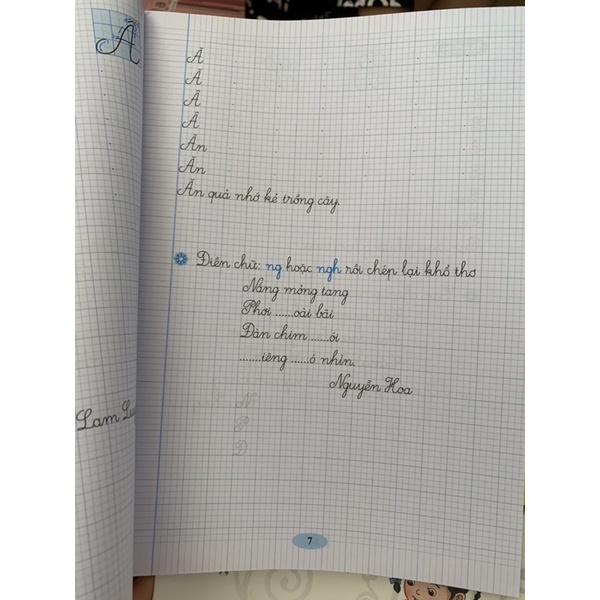 Ă
Ă
Ă
Â
Â
Ăn
Ăn
Ăn quả nhớ kẻ trồng cây.
Điền chữ: ng hoặc ngh rồi chép lại khổ thơ
Nắng mỏng tang
Phơi ......oài bãi
Đàn chim ......ói
.......iêng ......ó nhìn.
Nguyễn Hoa
Lam
N
P
Đ
7